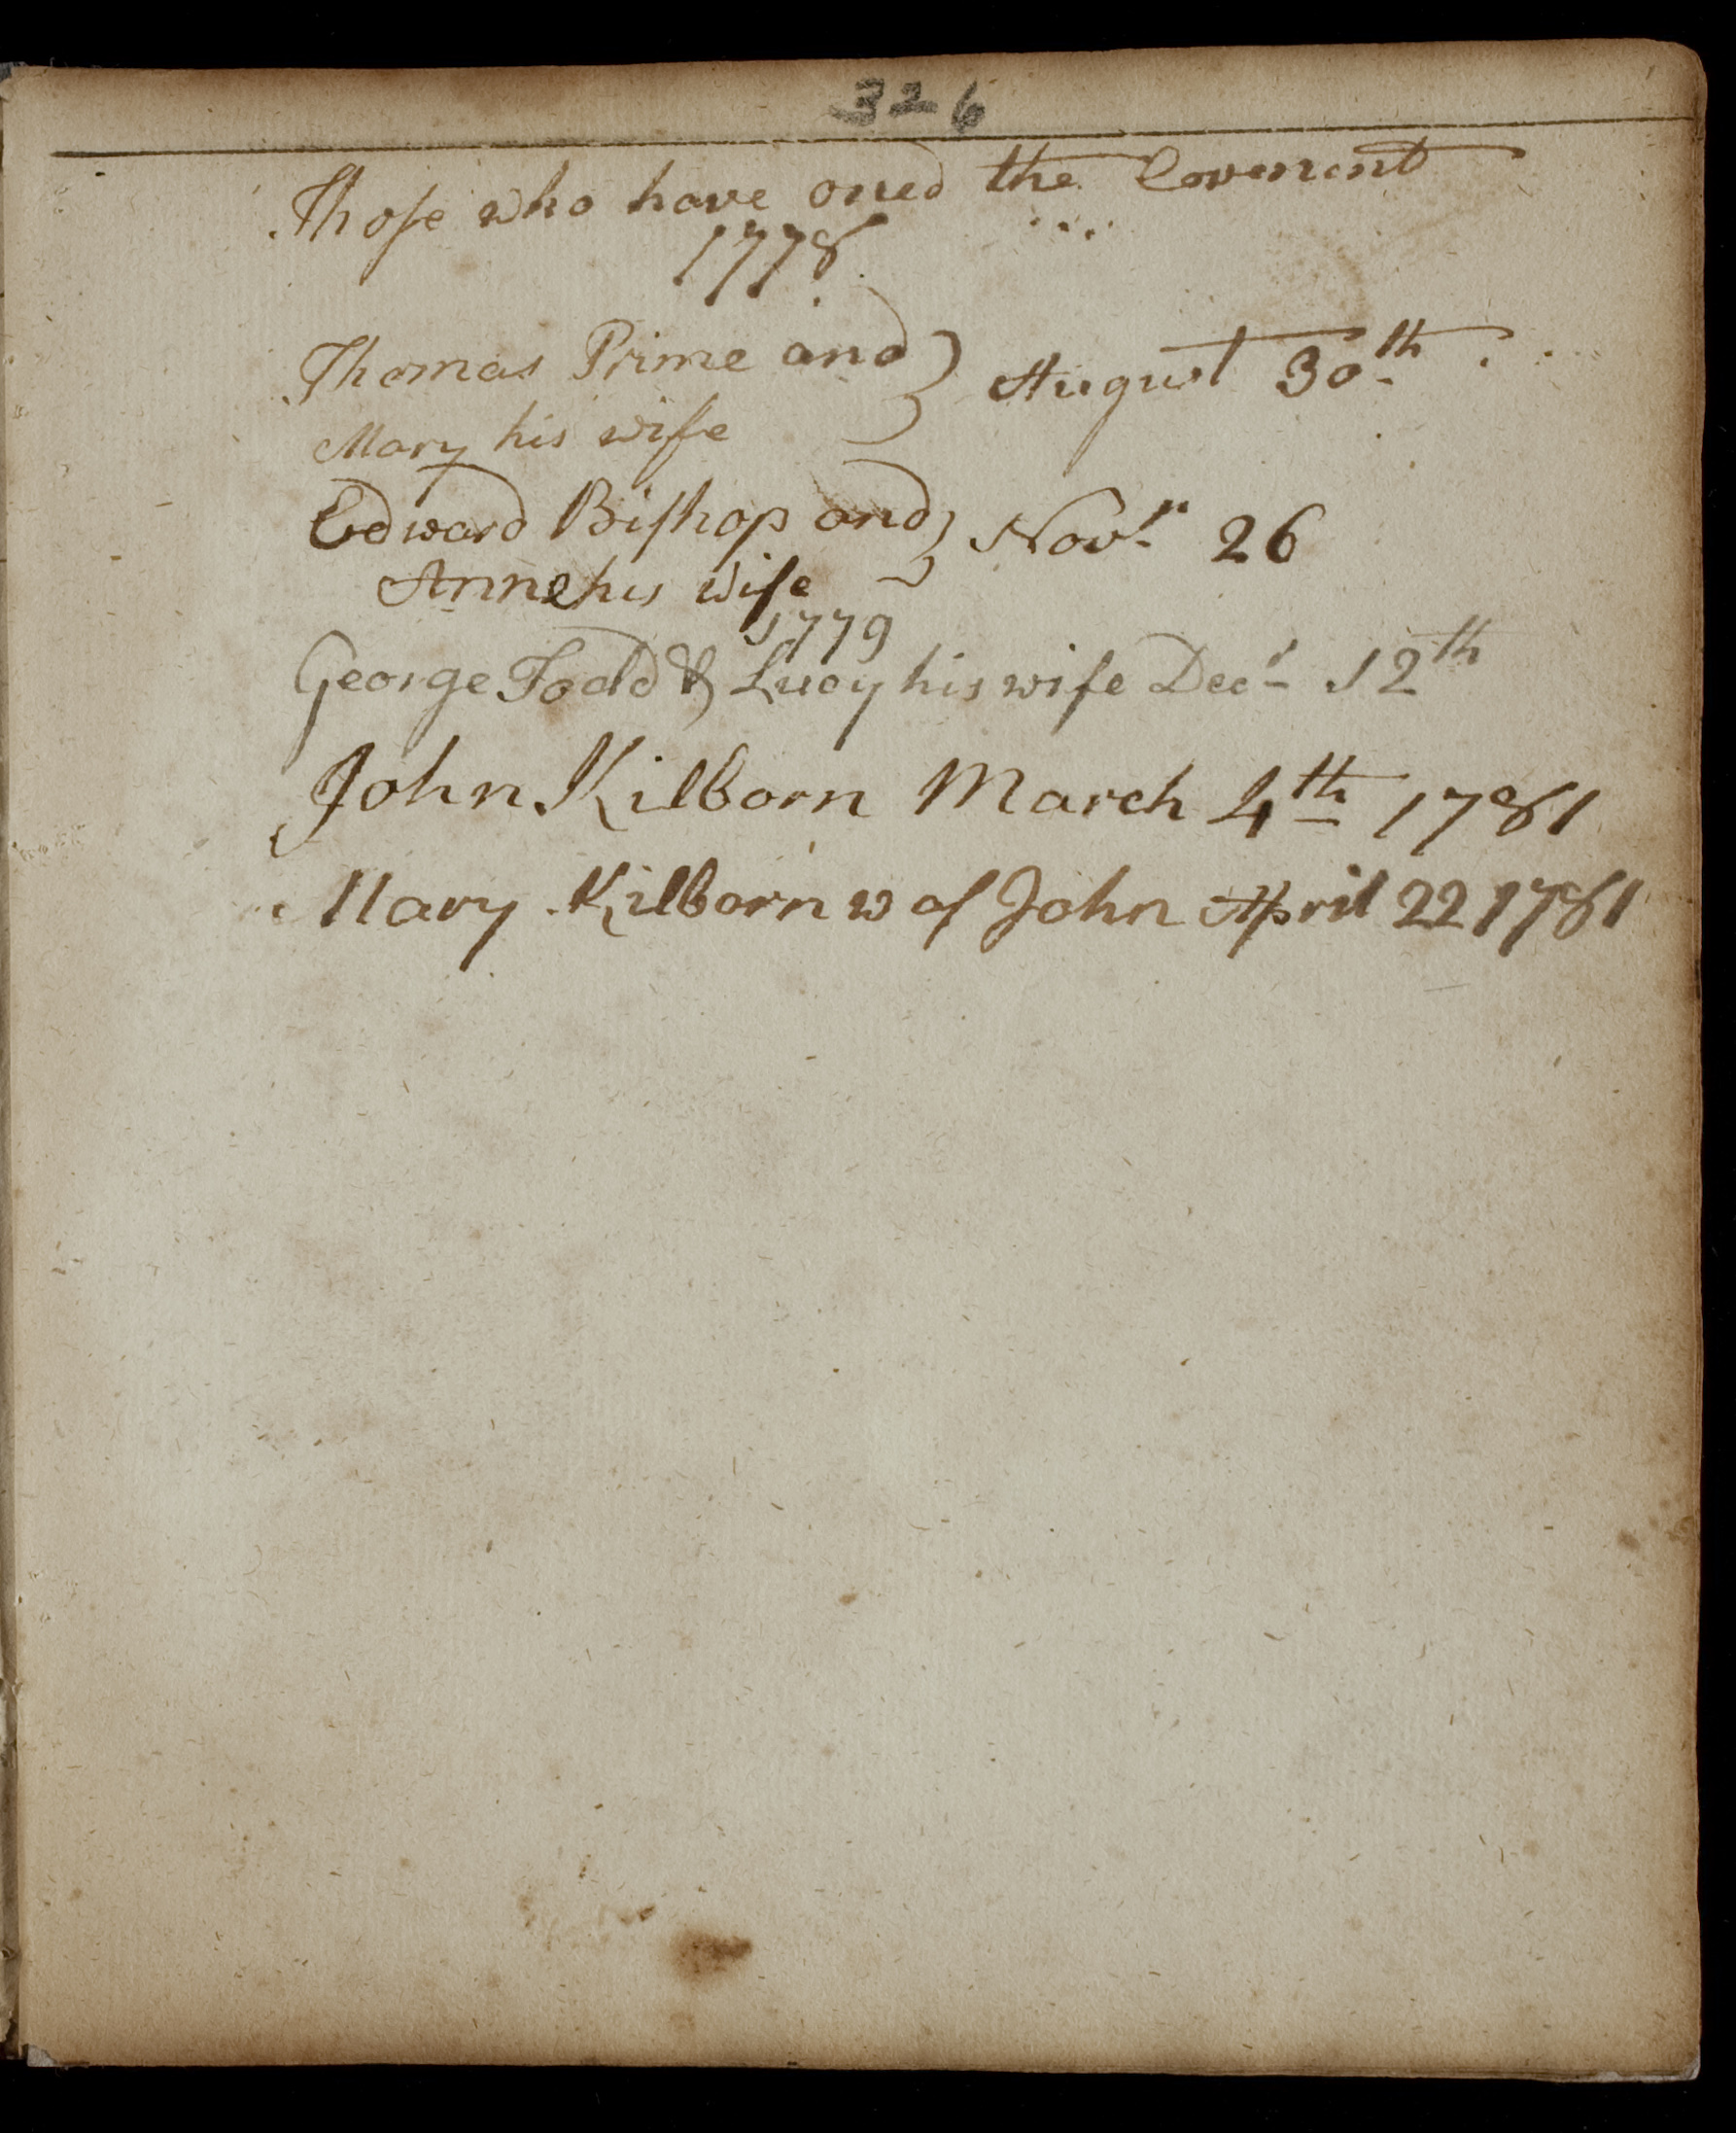 326
Those who have oned the Covenent
1778
Thomas Prime and } August 30th
Mary his wife
Edward Bishop and } Novr 26
Anne his wife
1779
George Todd & Lucy his wife Decr 12th
John Kilborn March 4th 1781
Mary Kilborn w of John April 22 1781